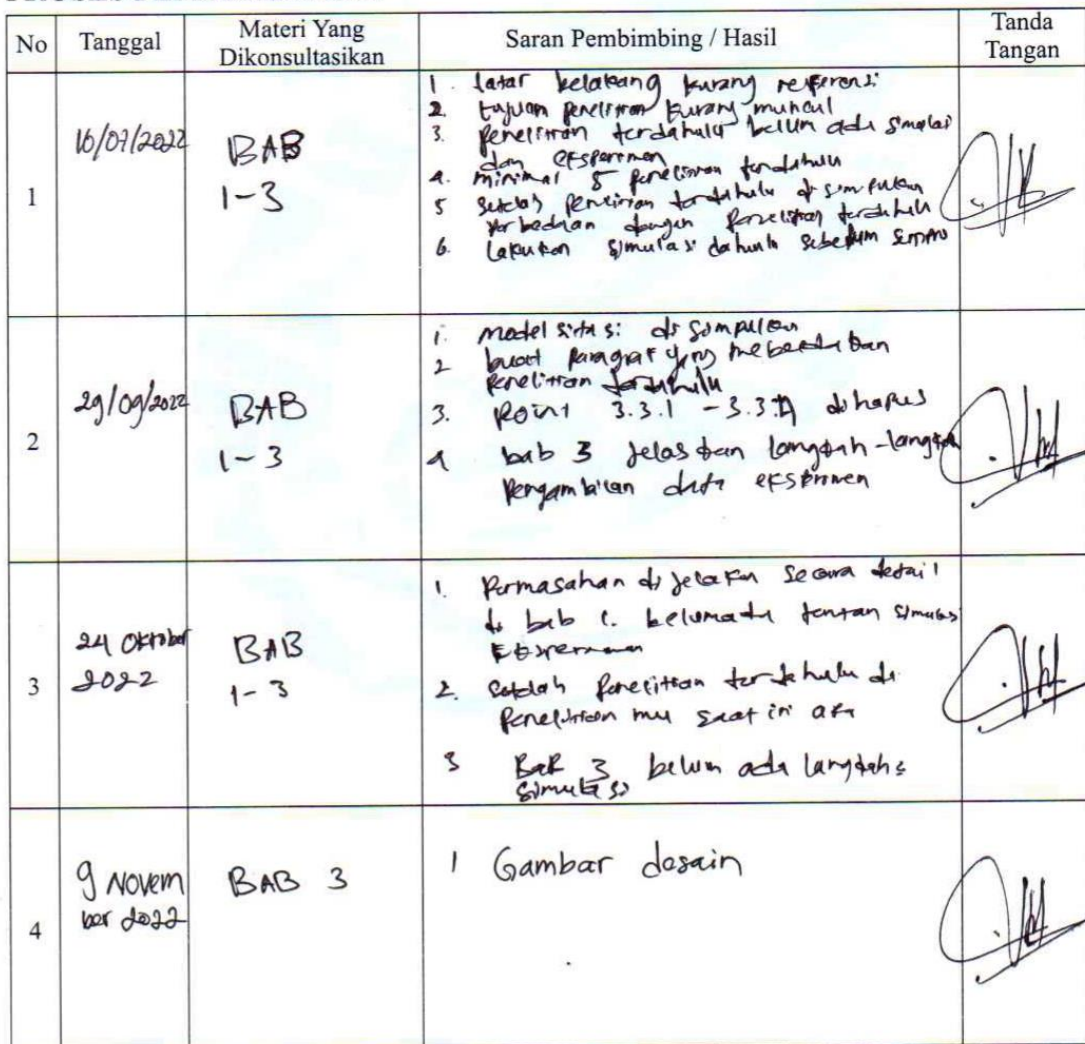 No
Tanggal
Materi Yang
Dikonsultasikan
Saran Pembimbing / Hasil
Tanda
Tangan
1
16/07/2022
BAB
1-3
1. latar belakang kurang referensi
2. tujuan penelitian kurang muncul
3. penelitian terdahulu belum ada simulasi
dan eksperimen
4. minimal 5 penelitian terdahulu
5 setelah penelitian terdahulu disimpulkan
perbedaan dengan penelitian terdahulu
6. lakukan simulasi dahulu sebelum sempro
2
29/09/2022
BAB
1-3
1. model sitasi disimpulkan
2 buat paragraf yang
penelitian terdahulu
3. Point 3.3.1 - dihapus
4 bab 3 jelaskan langkah-langkah
pengambilan data eksperimen
3
24 Oktober
2022
BAB
1-3
1. Permasahan di jelaskan secara detail
di bab 1. belum ada tentan simulasi
2. setelah penelitian terdahulu di
penelitian mu saat ini
3 Bab 3 belum ada langkah s
simulasi
4
9 Novem
ber 2022
BAB 3
1 Gambar desain